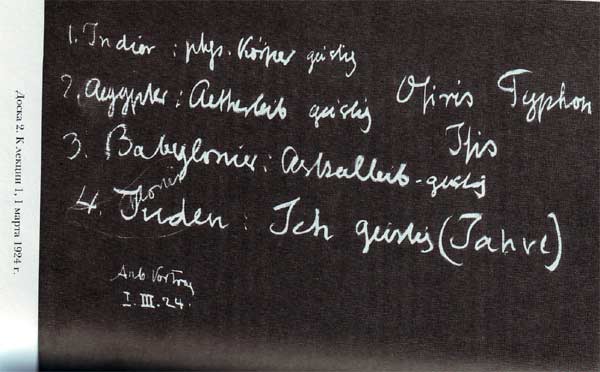 Доска 2. К лекции 1, 1 марта 1924 г.
1. Indier : phys. Körper geistig
2. Aegypter : Aetherleib geistig Osiris Typhon
Isis
3. Babylonier : Astralleib - geistig
4. Juden : Ich geistig (Jahve)
Arb Vortrag
I. III. 24.